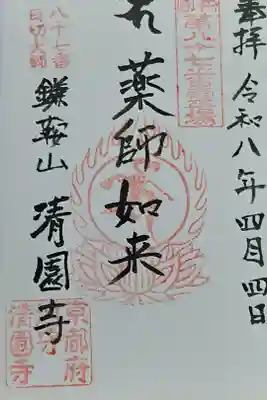 奉拝 令和八年四月四日
第八十七番霊場
薬師如来
八十七番
日切
鎌鞍山 清園寺
京都府
清園寺